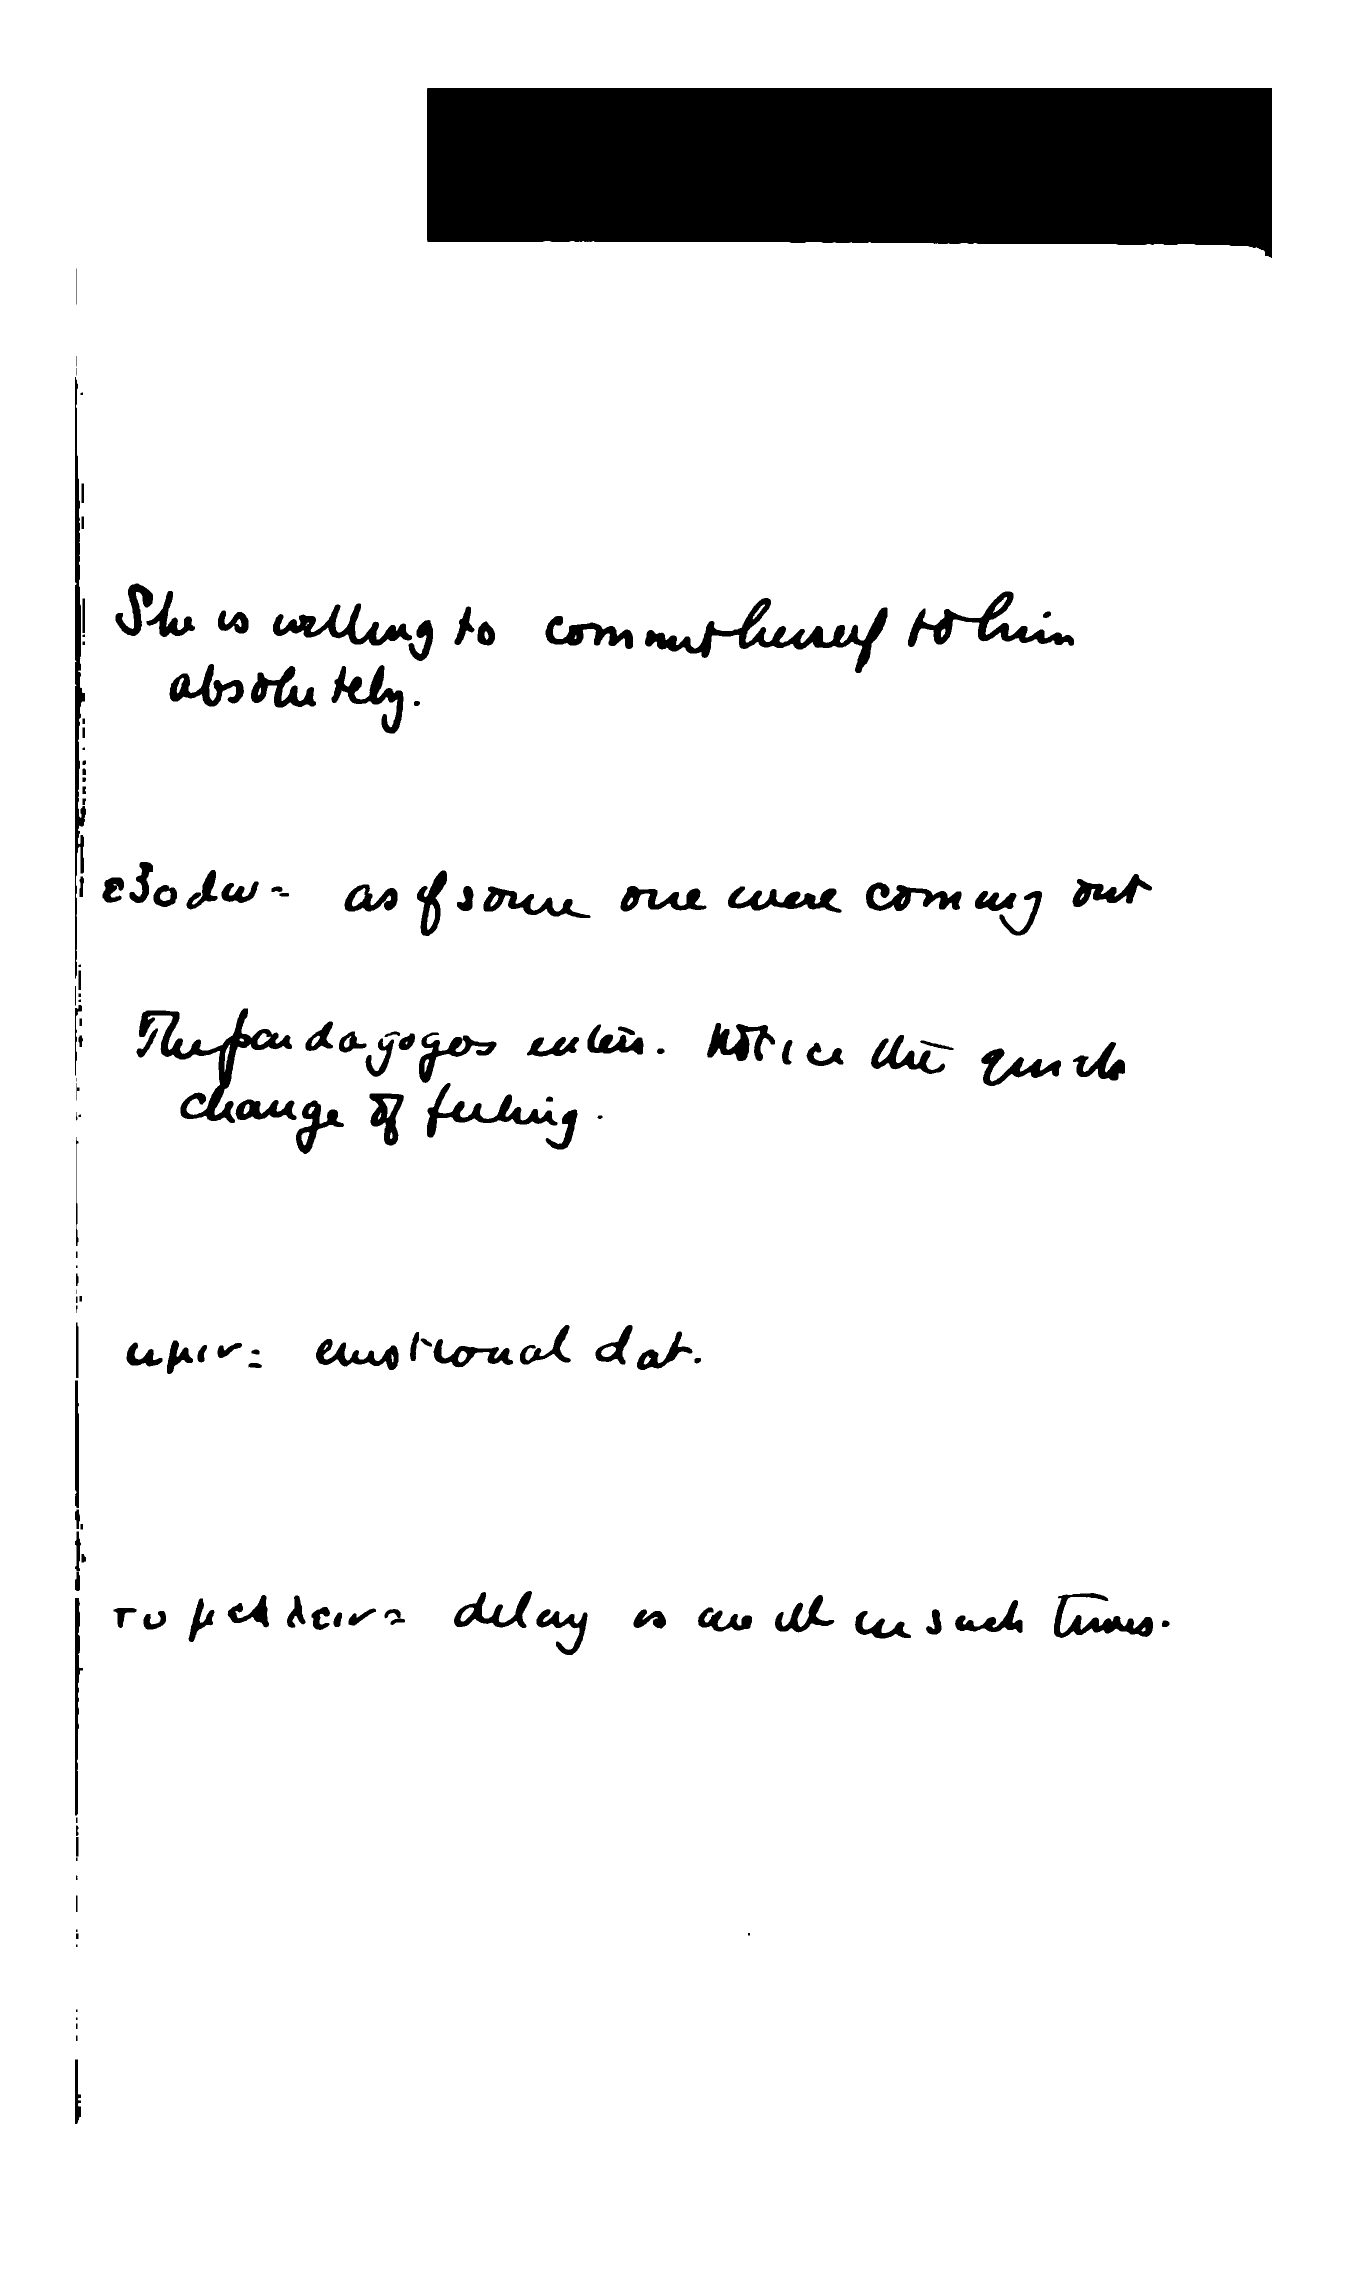 She is willing to commit herself to him
absolutely.
εξοδω = as if some one were coming out
The paidagogos enters. Notice the quick
change of feeling.
υμιν = emotional dat.
το μελλειν = delay is an ill in such times.